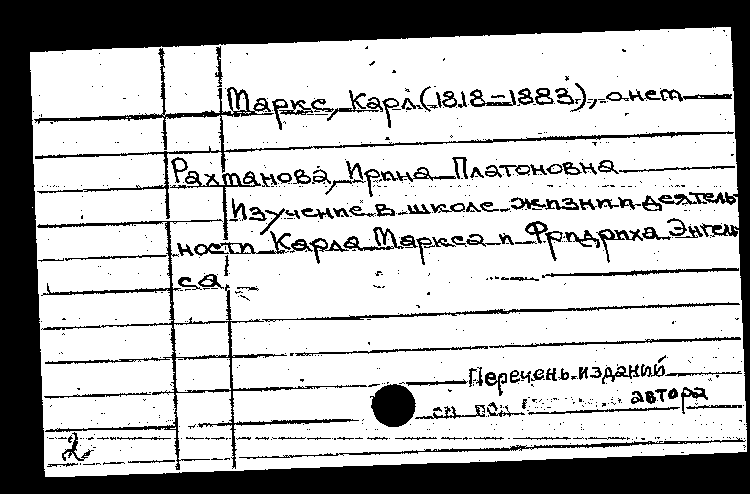 Маркс, Карл (1818-1883), о нем
Рахтанова, Ирина Платоновна
Изучение в школе жизни и деятель-
ности Карла Маркса и Фридриха Энгель-
са
Перечень изданий
см. под автора
2